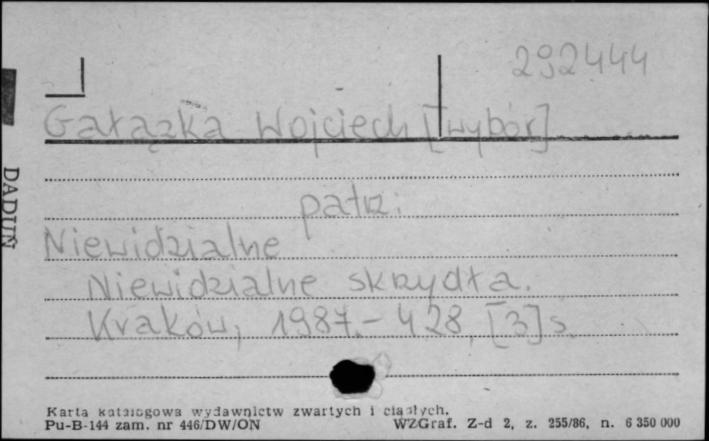 292444
Gałązka Wojciech [wybór]
DADUŃ
patrz:
Niewidzialne
Niewidzialne skrzydła.
Kraków, 1987.- 428, [3] s.
Karta katalogowa wydawnictw zwartych i ciągłych.
Pu-B-144 zam. nr 446/DW/ON
WZGraf. Z-d 2, z. 255/86, n. 6 350 000